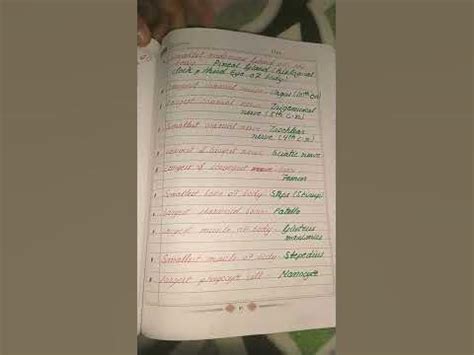 Smallest endocrine gland of the
body - Pineal gland (biological
clock & third eye of body)
Longest cranial nerve - Vagus (10th CN)
Largest cranial nerve - Trigeminal
nerve (5th C.N)
Smallest cranial nerve - Trochlear
nerve (4th C.N)
Largest nerve - Sciatic nerve
Longest & strongest bone -
Femur
Smallest bone of body - Stapes (Stirrup)
Largest sesamoid bone - Patella
Largest muscle of body - Gluteus
maximus
Smallest muscle of body - Stapedius
Largest phagocyte cell - Monocyte